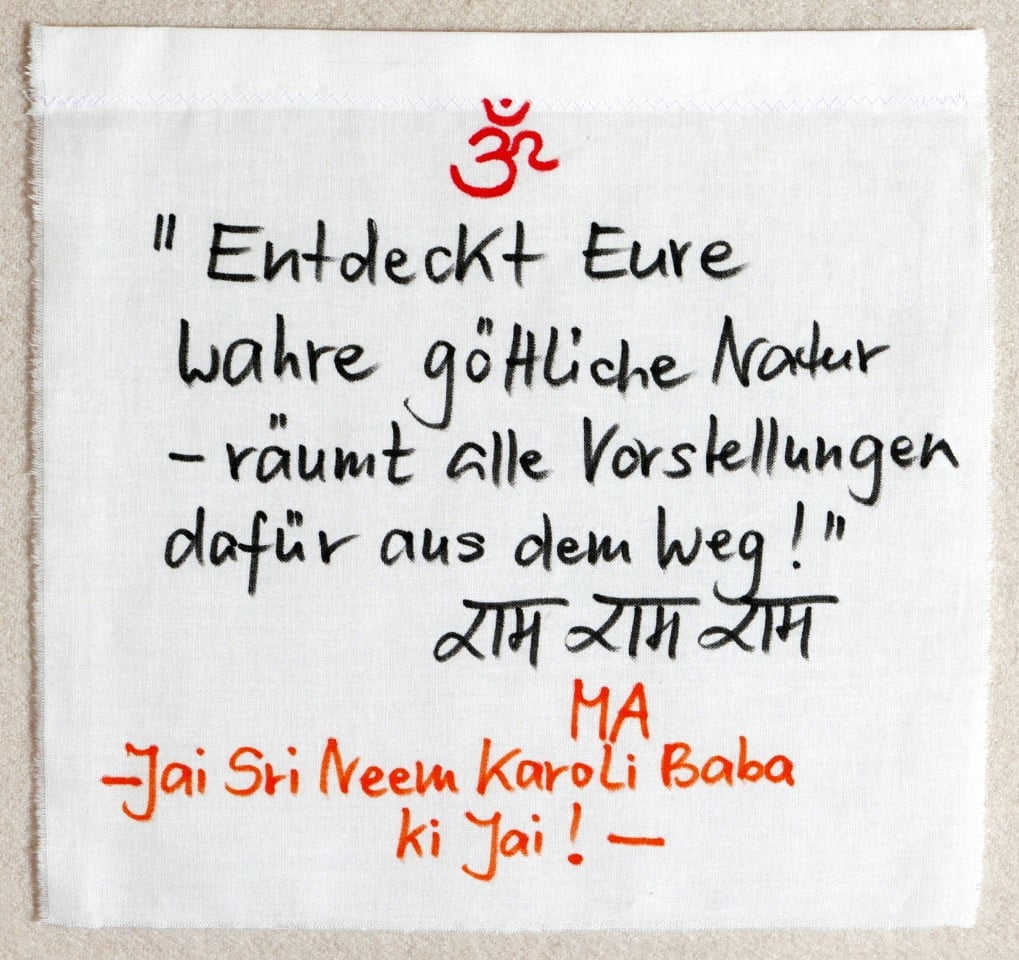 ॐ
" Entdeckt Eure
wahre göttliche Natur
– räumt alle Vorstellungen
dafür aus dem Weg ! "
राम राम राम
MA
– Jai Sri Neem Karoli Baba
ki Jai ! –